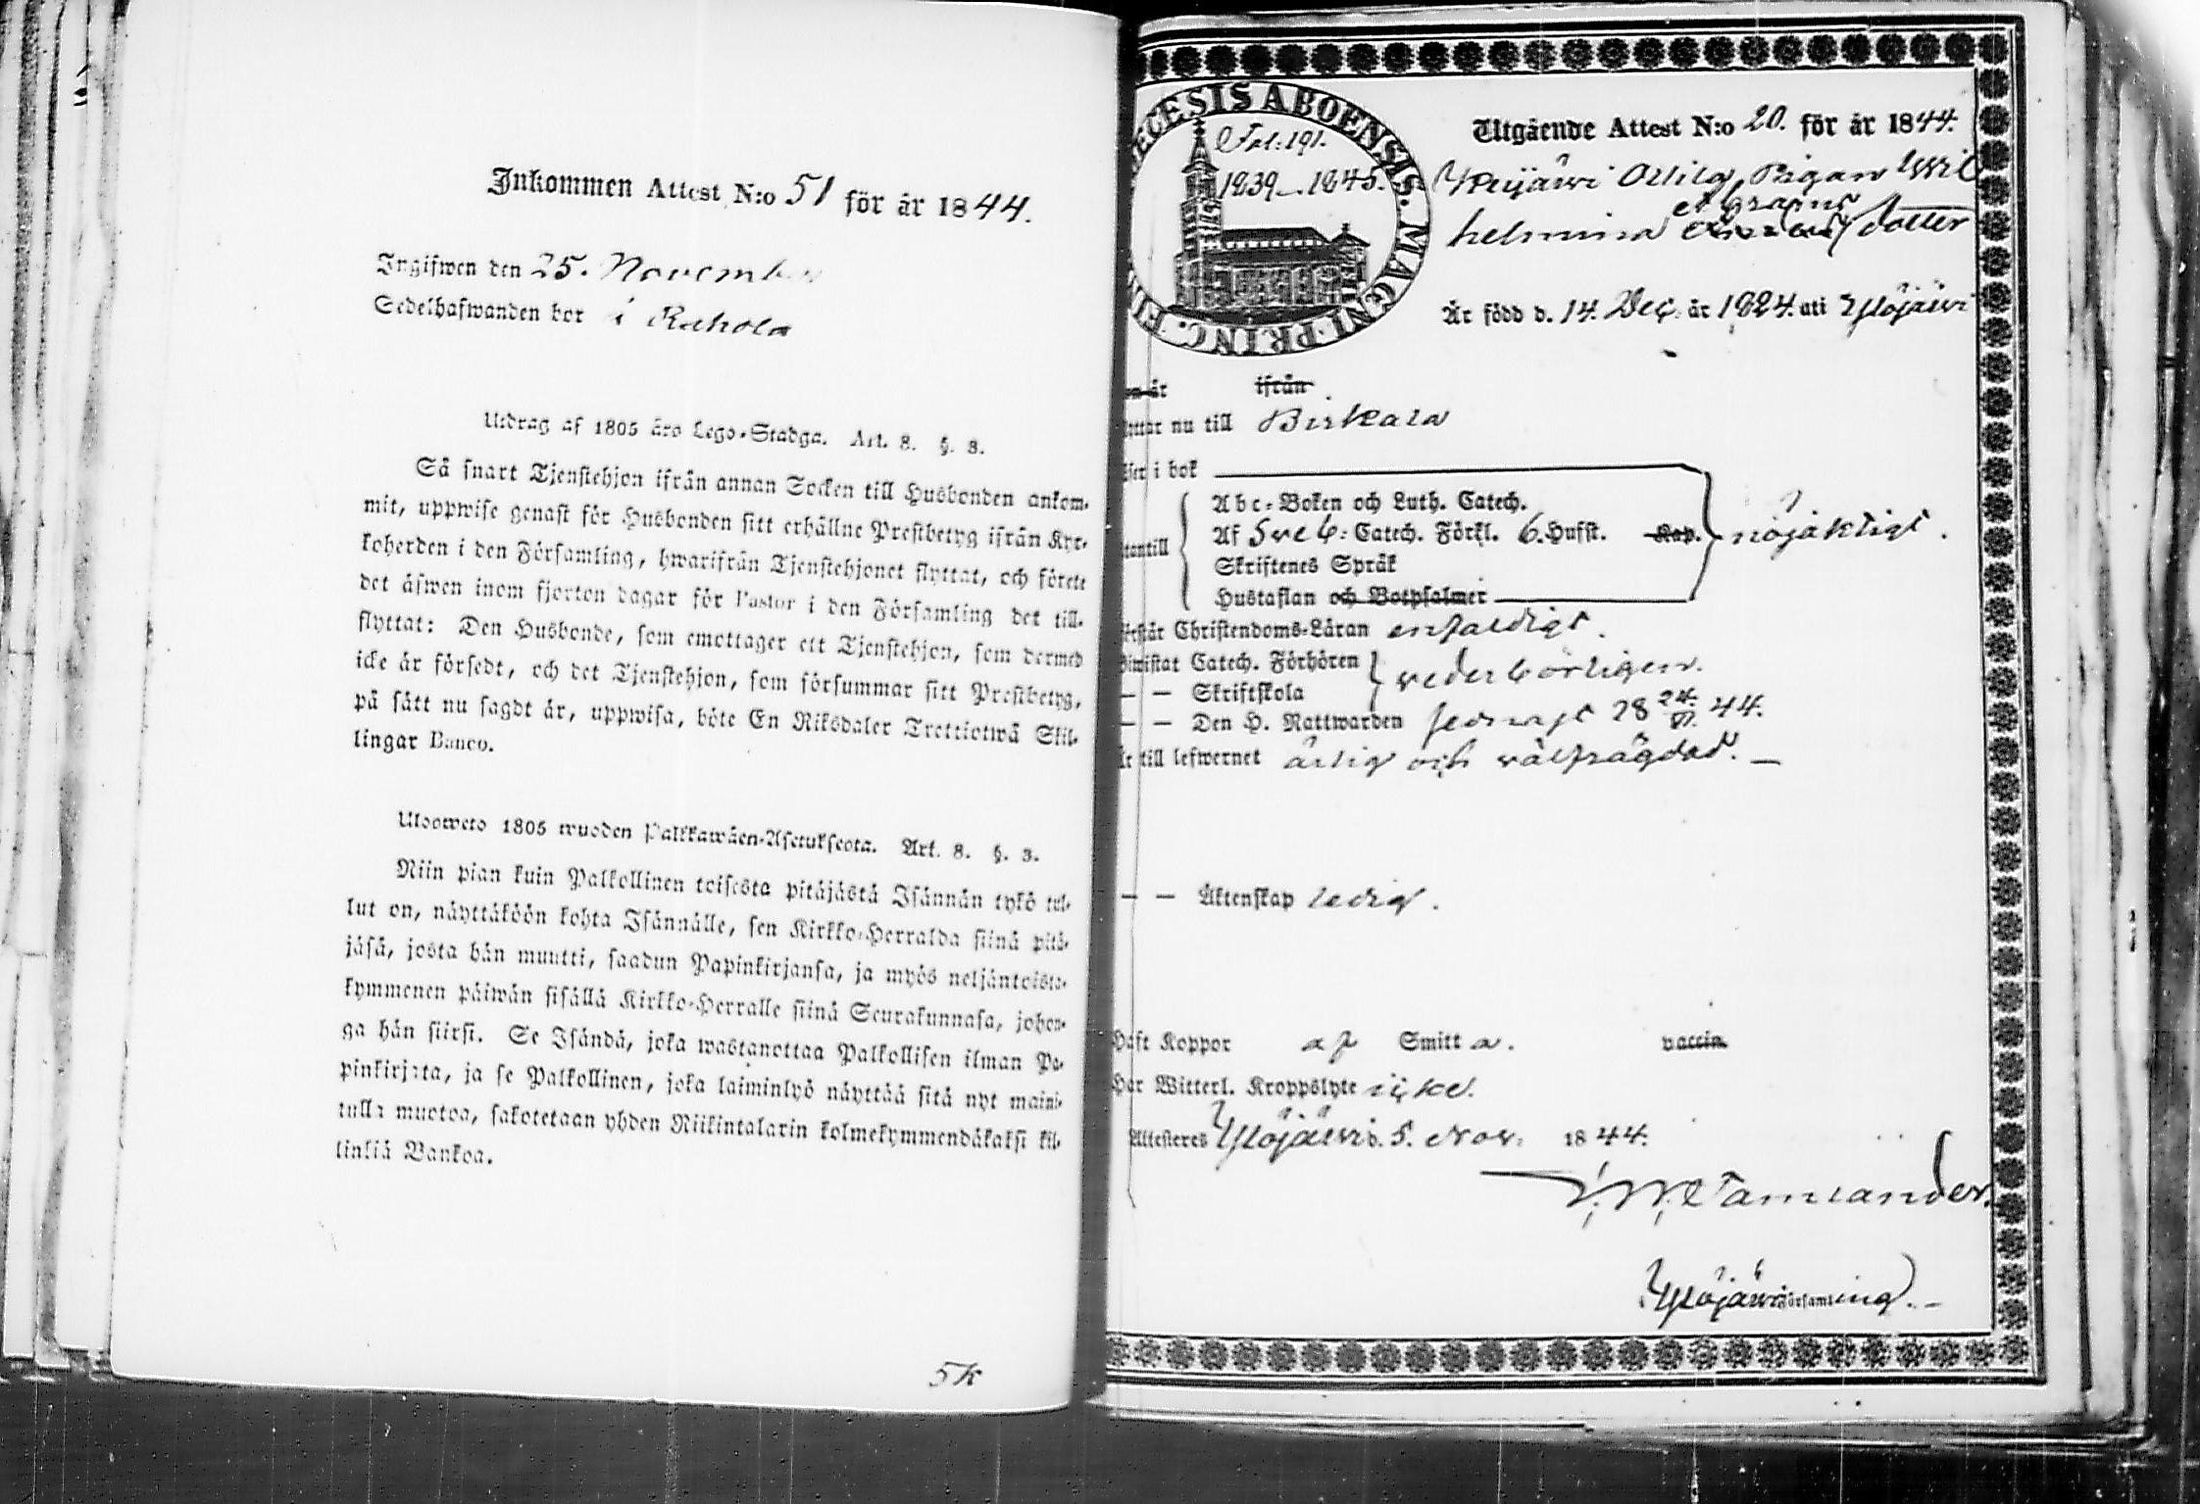 Inkommen Attest N:o 51 för år 1844.
Ingifwen den 25. November
Sedelhafwanden bor i Rahola
Utdrag af 1805 års Lego-Stadga. Art. 8. §. 3.
Så snart Tjenstehjon ifrån annan Socken till Husbonden ankom-
mit, uppwise genast för Husbonden sitt erhållne Prestbetyg ifrån Kyr-
koherden i den Församling, hwarifrån Tjenstehjonet flyttat, och förete
det äfwen inom fjorton dagar för Pastor i den Församling det till-
flyttat: Den Husbonde, som emottager ett Tjenstehjon, som dermed
icke är försedt, och det Tjenstehjon, som försummar sitt Prestbetyg,
på sätt nu sagdt är, uppwisa, böte En Riksdaler Trettiotwå Skil-
lingar Banco.
Ulosweto 1805 wuoden Palkkawäen-Asetuksesta. Art. 8. §. 3.
Niin pian kuin Palkollinen toisesta pitäjästä Isännän tykö tul-
lut on, näyttäköön kohta Isännälle, sen Kirkko-Herralda siinä pitä-
jäsä, josta hän muutti, saadun Papinkirjansa, ja myös neljäntoista-
kymmenen päiwän sisällä Kirkko-Herralle siinä Seurakunnasa, johon-
ga hän siirsi. Se Isändä, joka wastanottaa Palkollisen ilman Pa-
pinkirjata, ja se Palkollinen, joka laiminlyö näyttää sitä nyt maini-
tulla muotoa, sakotetaan yhden Riikintalarin kolmekymmendäkaksi kil-
linkiä Bankoa.
5k
ECESIS ABOENSIS. MAGNI PRINC. FI
Fol: 191.
1839–1845.
Utgående Attest N:o 20. för år 1844.
Ottila, Pigan Wil
helmina dotter
Är född d. 14. Dec. år 1824. uti Ylöjärvi
ifrån
nu till Birkala
i bok
Abc-Boken och Luth. Catech.
Af Sveb: Catech. Förkl. 6. Hufst. Kap. nöjaktigt.
Skriftenes Språk
Hustaflan och Botpsalmer
Christendoms-Läran enfaldigt.
Catech. Förhören
— — Skriftskola vederbörligen.
— — Den H. Nattwarden sednast 44.
till lefwernet ärlig och välfrägdad. —
— — Äktenskap ledig.
Haft Koppor af Smitta. vaccin
Har Witterl. Kroppslyte icke.
Attesteres Ylöjärvi d. 5. Nov: 1844.
Tamlander.
Ylöjärvi Församling. –